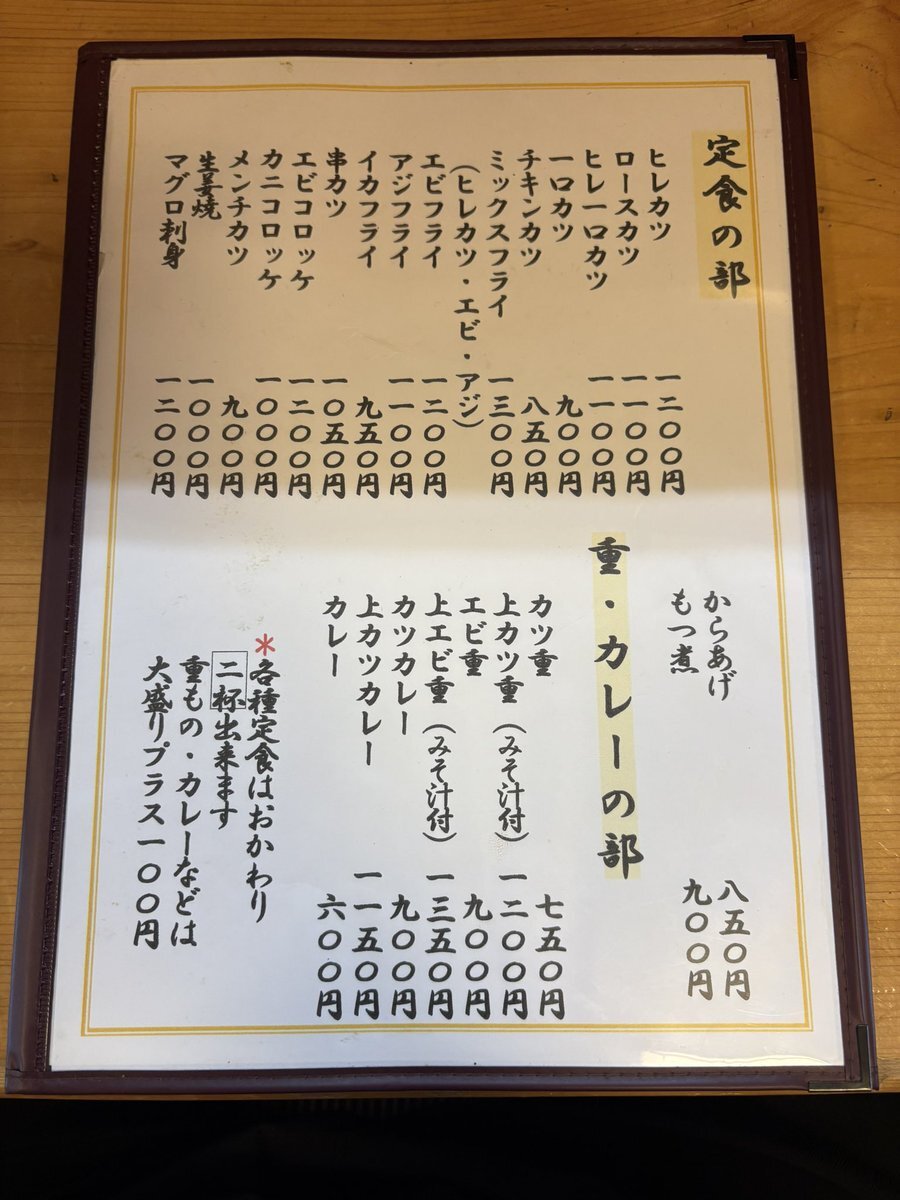 定食の部
ヒレカツ 一二〇〇円
ロースカツ 一一〇〇円
ヒレ一口カツ 一一〇〇円
一口カツ 九〇〇円
チキンカツ 八五〇円
ミックスフライ 一三〇〇円
(ヒレカツ・エビ・アジ)
エビフライ 一二〇〇円
アジフライ 一一〇〇円
イカフライ 九五〇円
串カツ 一〇五〇円
エビコロッケ 一二〇〇円
カニコロッケ 一〇〇〇円
メンチカツ 九〇〇円
生姜焼 一〇〇〇円
マグロ刺身 一二〇〇円
からあげ 八五〇円
もつ煮 九〇〇円
重・カレーの部
カツ重 七五〇円
上カツ重(みそ汁付) 一二〇〇円
エビ重 九〇〇円
上エビ重(みそ汁付) 一三五〇円
カツカレー 九〇〇円
上カツカレー 一一五〇円
カレー 六〇〇円
*各種定食はおかわり
二杯出来ます
重もの・カレーなどは
大盛りプラス一〇〇円